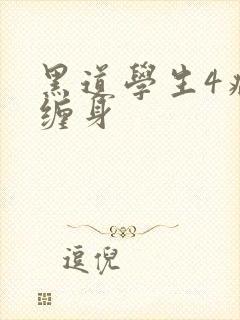 黑道學生4
缠身
逗倪